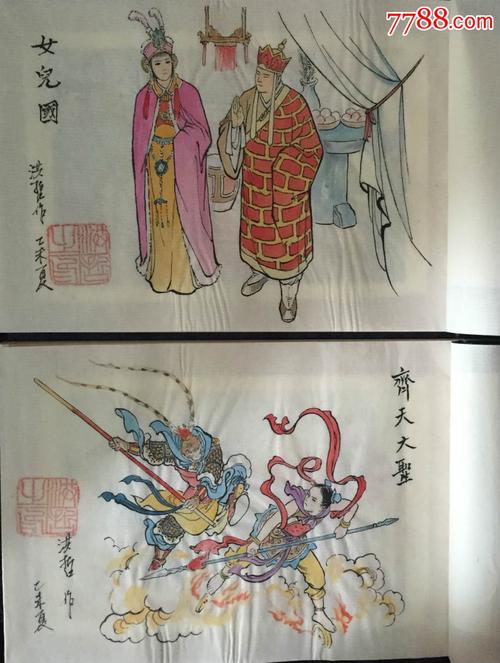 7788.com
女兒國
洪哲作
乙未夏
齊天大聖
洪哲作
乙未夏